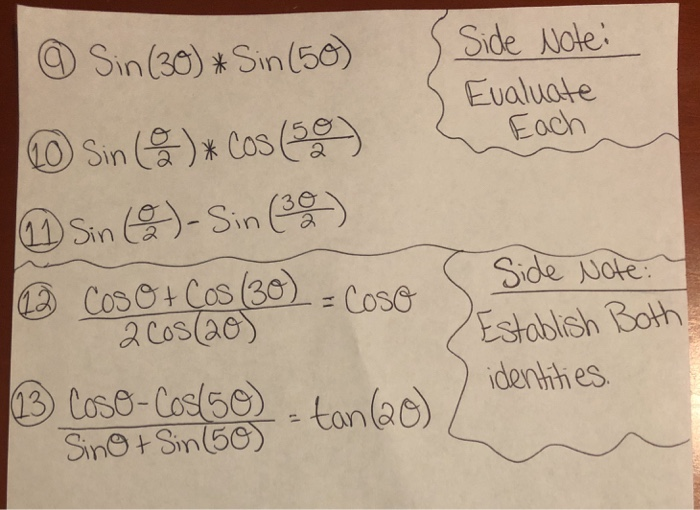 ⑨ Sin(3θ) * Sin(5θ)
Side Note:
Evaluate
Each
⑩ Sin(θ/2) * Cos(5θ/2)
⑪ Sin(θ/2) - Sin(3θ/2)
⑫ Cosθ + Cos(3θ) / 2Cos(2θ) = Cosθ
Side Note:
Establish Both
identities.
⑬ Cosθ - Cos(5θ) / Sinθ + Sin(5θ) = tan(2θ)